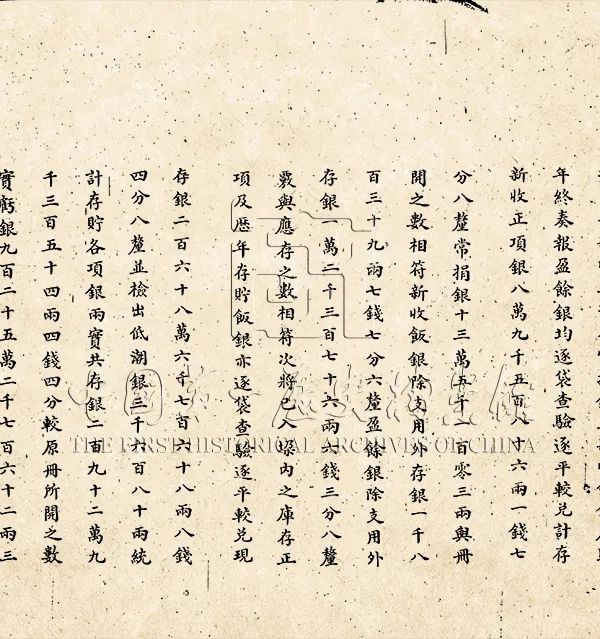 年終奏報盈餘銀均逐袋查驗逐平較兌計存
新收正項銀八萬九千五百八十六兩一錢七
分八釐常捐銀十三萬五千一百零三兩與冊
開之數相符新收飯銀除支用外存銀一千八
百三十九兩七錢七分六釐盈餘銀除支用外
存銀一萬二千三百七十六兩六錢三分八釐
覈與應存之數相符次將已入梁內之庫存正
項及歷年存貯飯銀亦逐袋查驗逐平較兌現
存銀二百六十八萬六千七百六十八兩八錢
四分八釐並檢出低潮銀三千六百八十兩統
計存貯各項銀兩實共存銀二百九十二萬九
千三百五十四兩四錢四分較原冊所開之數
實虧銀九百二十五萬二千七百六十二兩三
中國第一歷史檔案館
THE FIRST HISTORICAL ARCHIVES OF CHINA